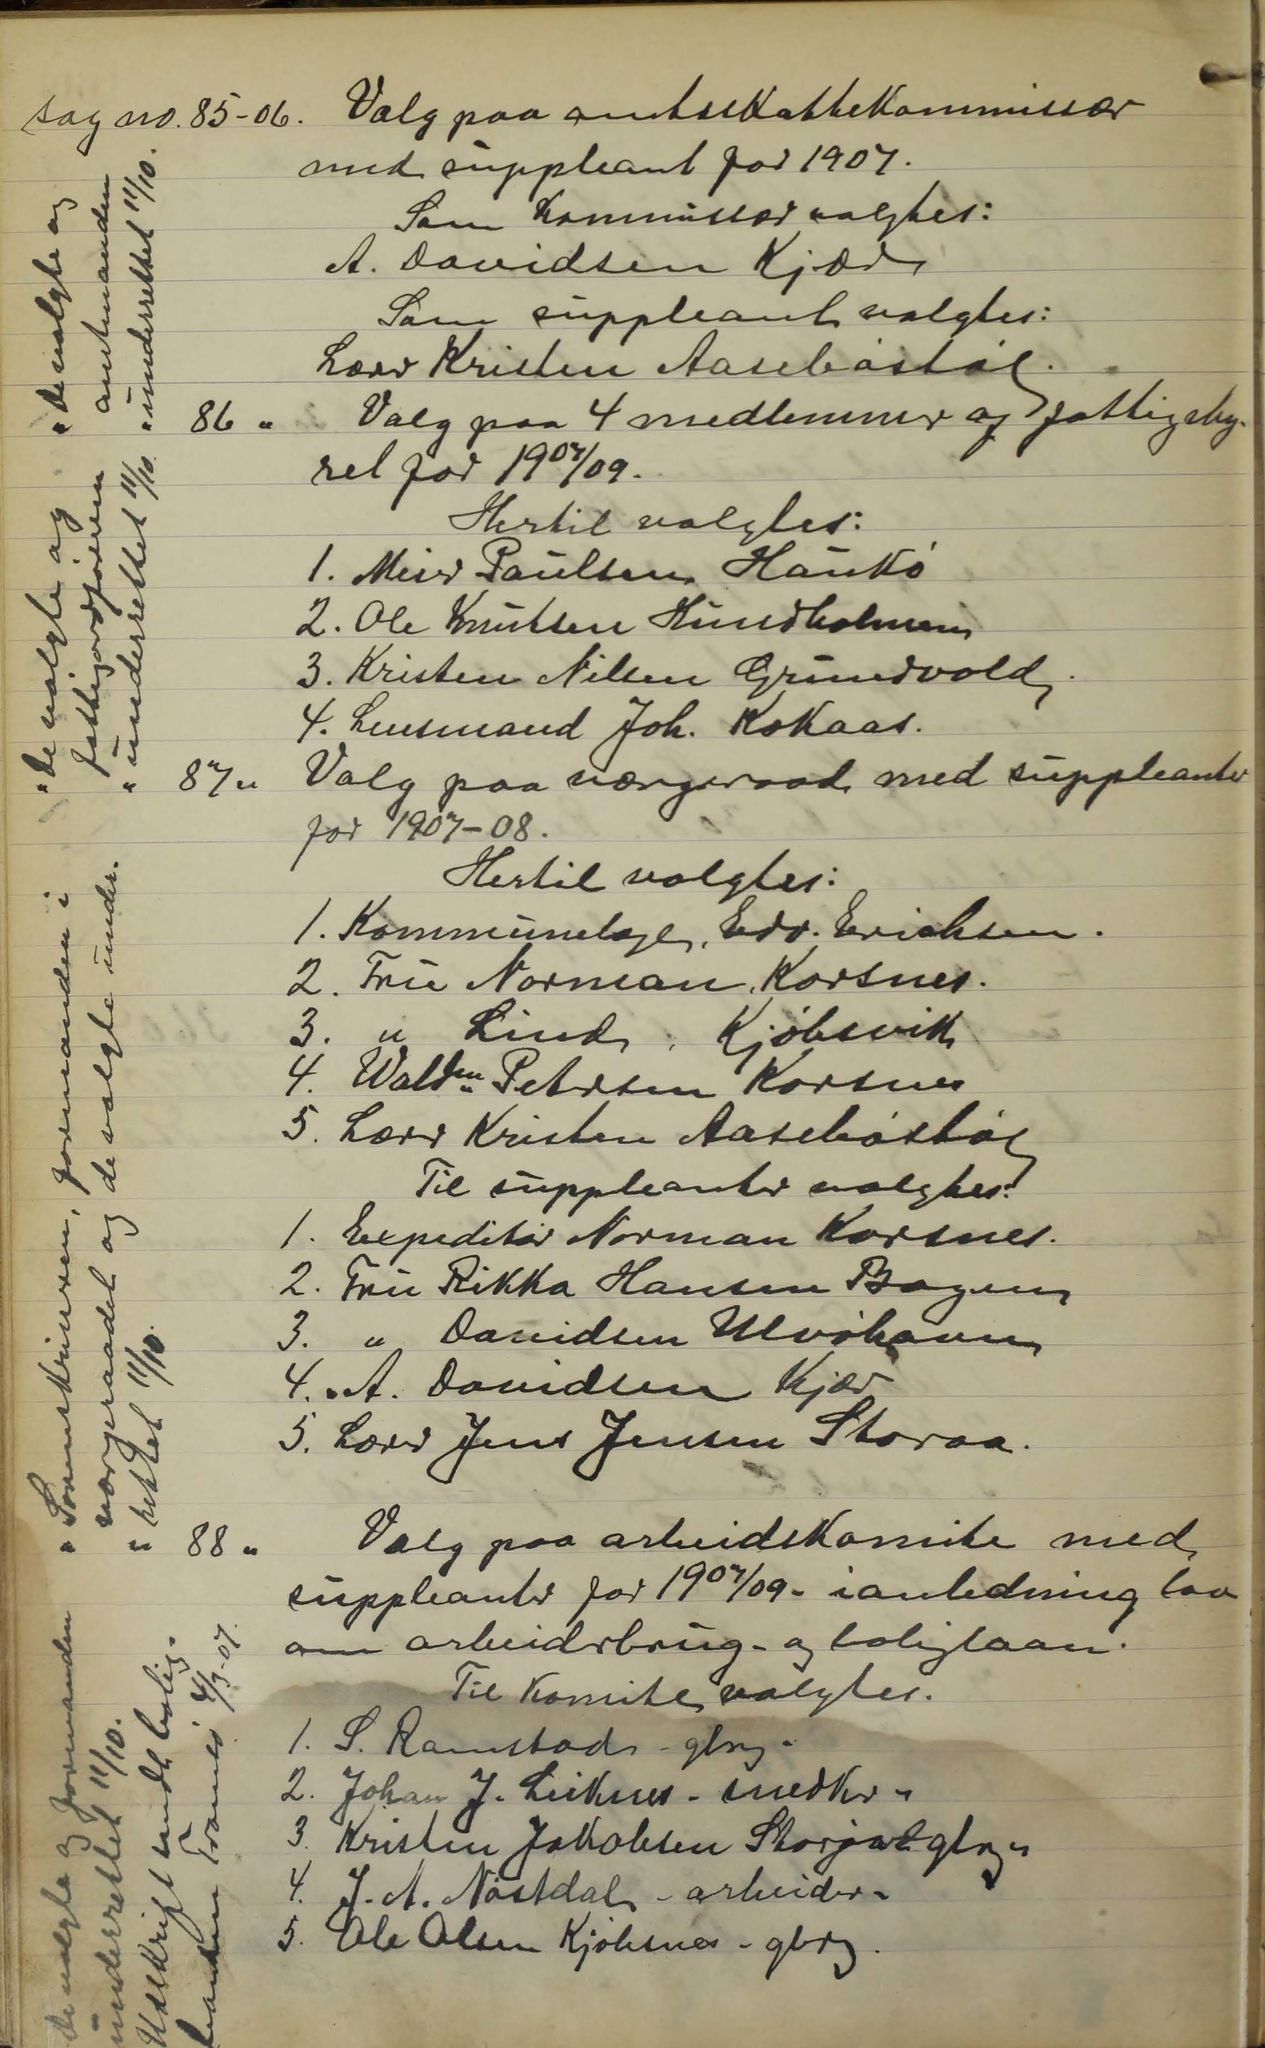 Sag no. 85-06. Valg paa amtsskattekommissær
med suppleant for 1907.
Som kommissær valgtes:
A. Davidsen Kjær
Som suppleant valgtes:
Lærer Kristen Aasebøstøl.
86 " Valg paa 4 medlemmer af fattigsty-
ret for 1907/09.
Hertil valgtes:
1. Meier Paulsen Haukø
2. Ole Knutsen Hundholmen
3. Kristen Nilsen Grundvold,
4. Lensmand Joh. Kokaas.
87 " Valg paa værgeraad med suppleanter
for 1907-08.
Hertil valgtes:
1. Kommunelæge, Edv. Erichsen.
2. Fru Norman, Korsnes.
3. " Lind, Kjøbsvik
4. Wald. Petersen Korsnes
5. Lærer Kristen Aasebøstøl
Til suppleanter valgtes:
1. Expeditør Norman Korsnes.
2. Fru Rikka Hansen Bogen
3. " Davidsen Ulvøhavn
4. " A. Davidsen Kjær
5. Lærer Jens Jensen Storaa.
88 " Valg paa arbeidskomite med
suppleanter for 1907/09 - i anledning lov
om arbeidsbrug- og boliglaan.
Til komite valgtes.
1. S. Ramstad - gbrg -
2. Johan J. Leiknes - snedker -
3. Kristen Jakobsen Storjord gbrg -
4. J. A. Nøstdal - arbeider -
5. Ole Olsen Kjøbsnes - gbrg.
" De valgte og
amtmanden
" underrettet 11/10.
" De valgte og
fattigordføreren
" underrettet 11/10.
" Sorenskriveren, formanden i
værgeraadet og de valgte under-
" rettet 11/10.
De valgte og formanden
underrettet 11/10.
Udskrift sendt bolig-
banken Tromsø 4/3-07.